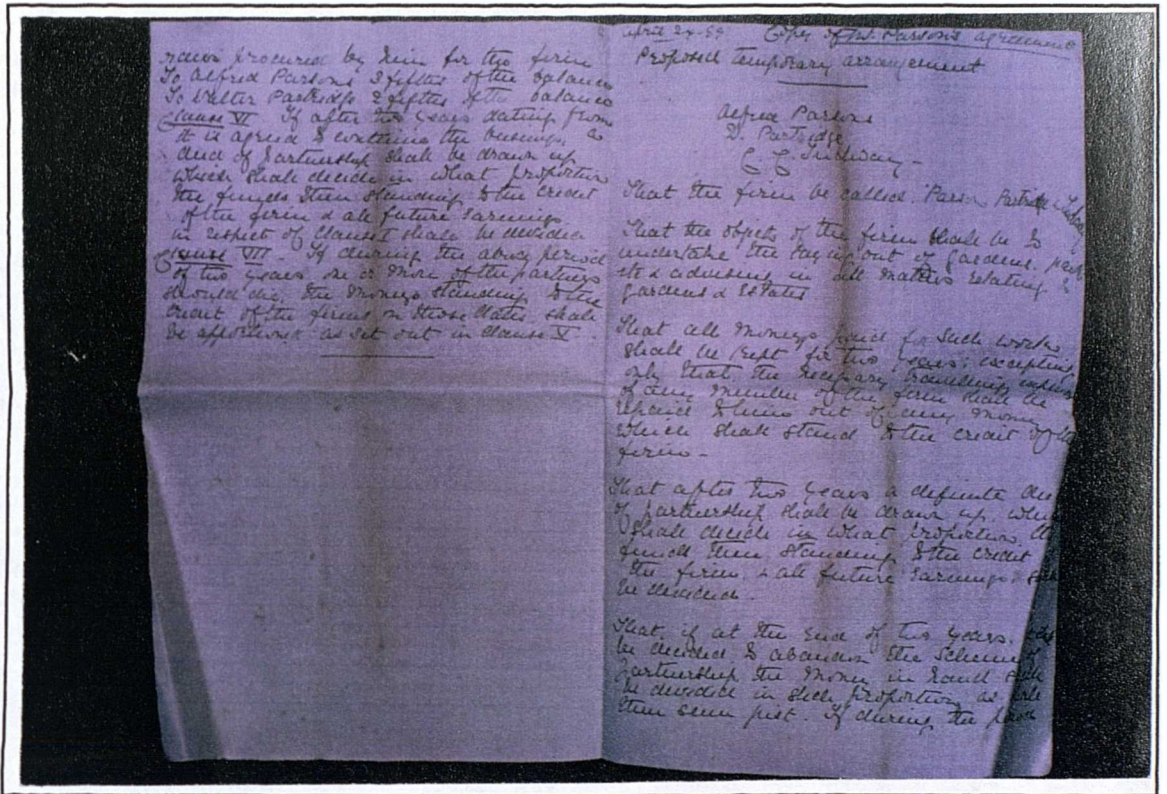 procured by him for the firm
To Alfred Parsons 3 fifths of the balance
To Walter Partridge 2 fifths of the balance
Clause VI If after two years dating from
it is agreed to continue the business, a
deed of Partnership shall be drawn up
which shall decide in what proportion
the funds then standing to the credit
of the firm & all future earnings
in respect of Clause I shall be divided
Clause VII. If during the above period
of two years one or more of the partners
should die, the moneys standing to the
credit of the firm on those dates shall
be apportioned as set out in Clause V.
April 24-99 Copy of Mr Parsons agreement
Proposed temporary arrangement
Alfred Parsons
W. Partridge
C. C. Tudway
That the firm be called Parsons Partridge & Tudway
That the objects of the firm shall be to
undertake the laying out of gardens, parks
etc & advising in all matters relating to
gardens & Estates
That all moneys paid for such works
shall be kept for two years, excepting
only that the necessary travelling expenses
of any member of the firm shall be
repaid to him out of any money
which shall stand to the credit of the
firm -
That after two years a definite deed
of partnership shall be drawn up which
shall decide in what proportion the
funds then standing to the credit
the firm & all future earnings shall
be divided.
That if at the end of two years
be decided to abandon the scheme of
Partnership the money in hand shall
be divided in such proportion as
then seem just. If during the